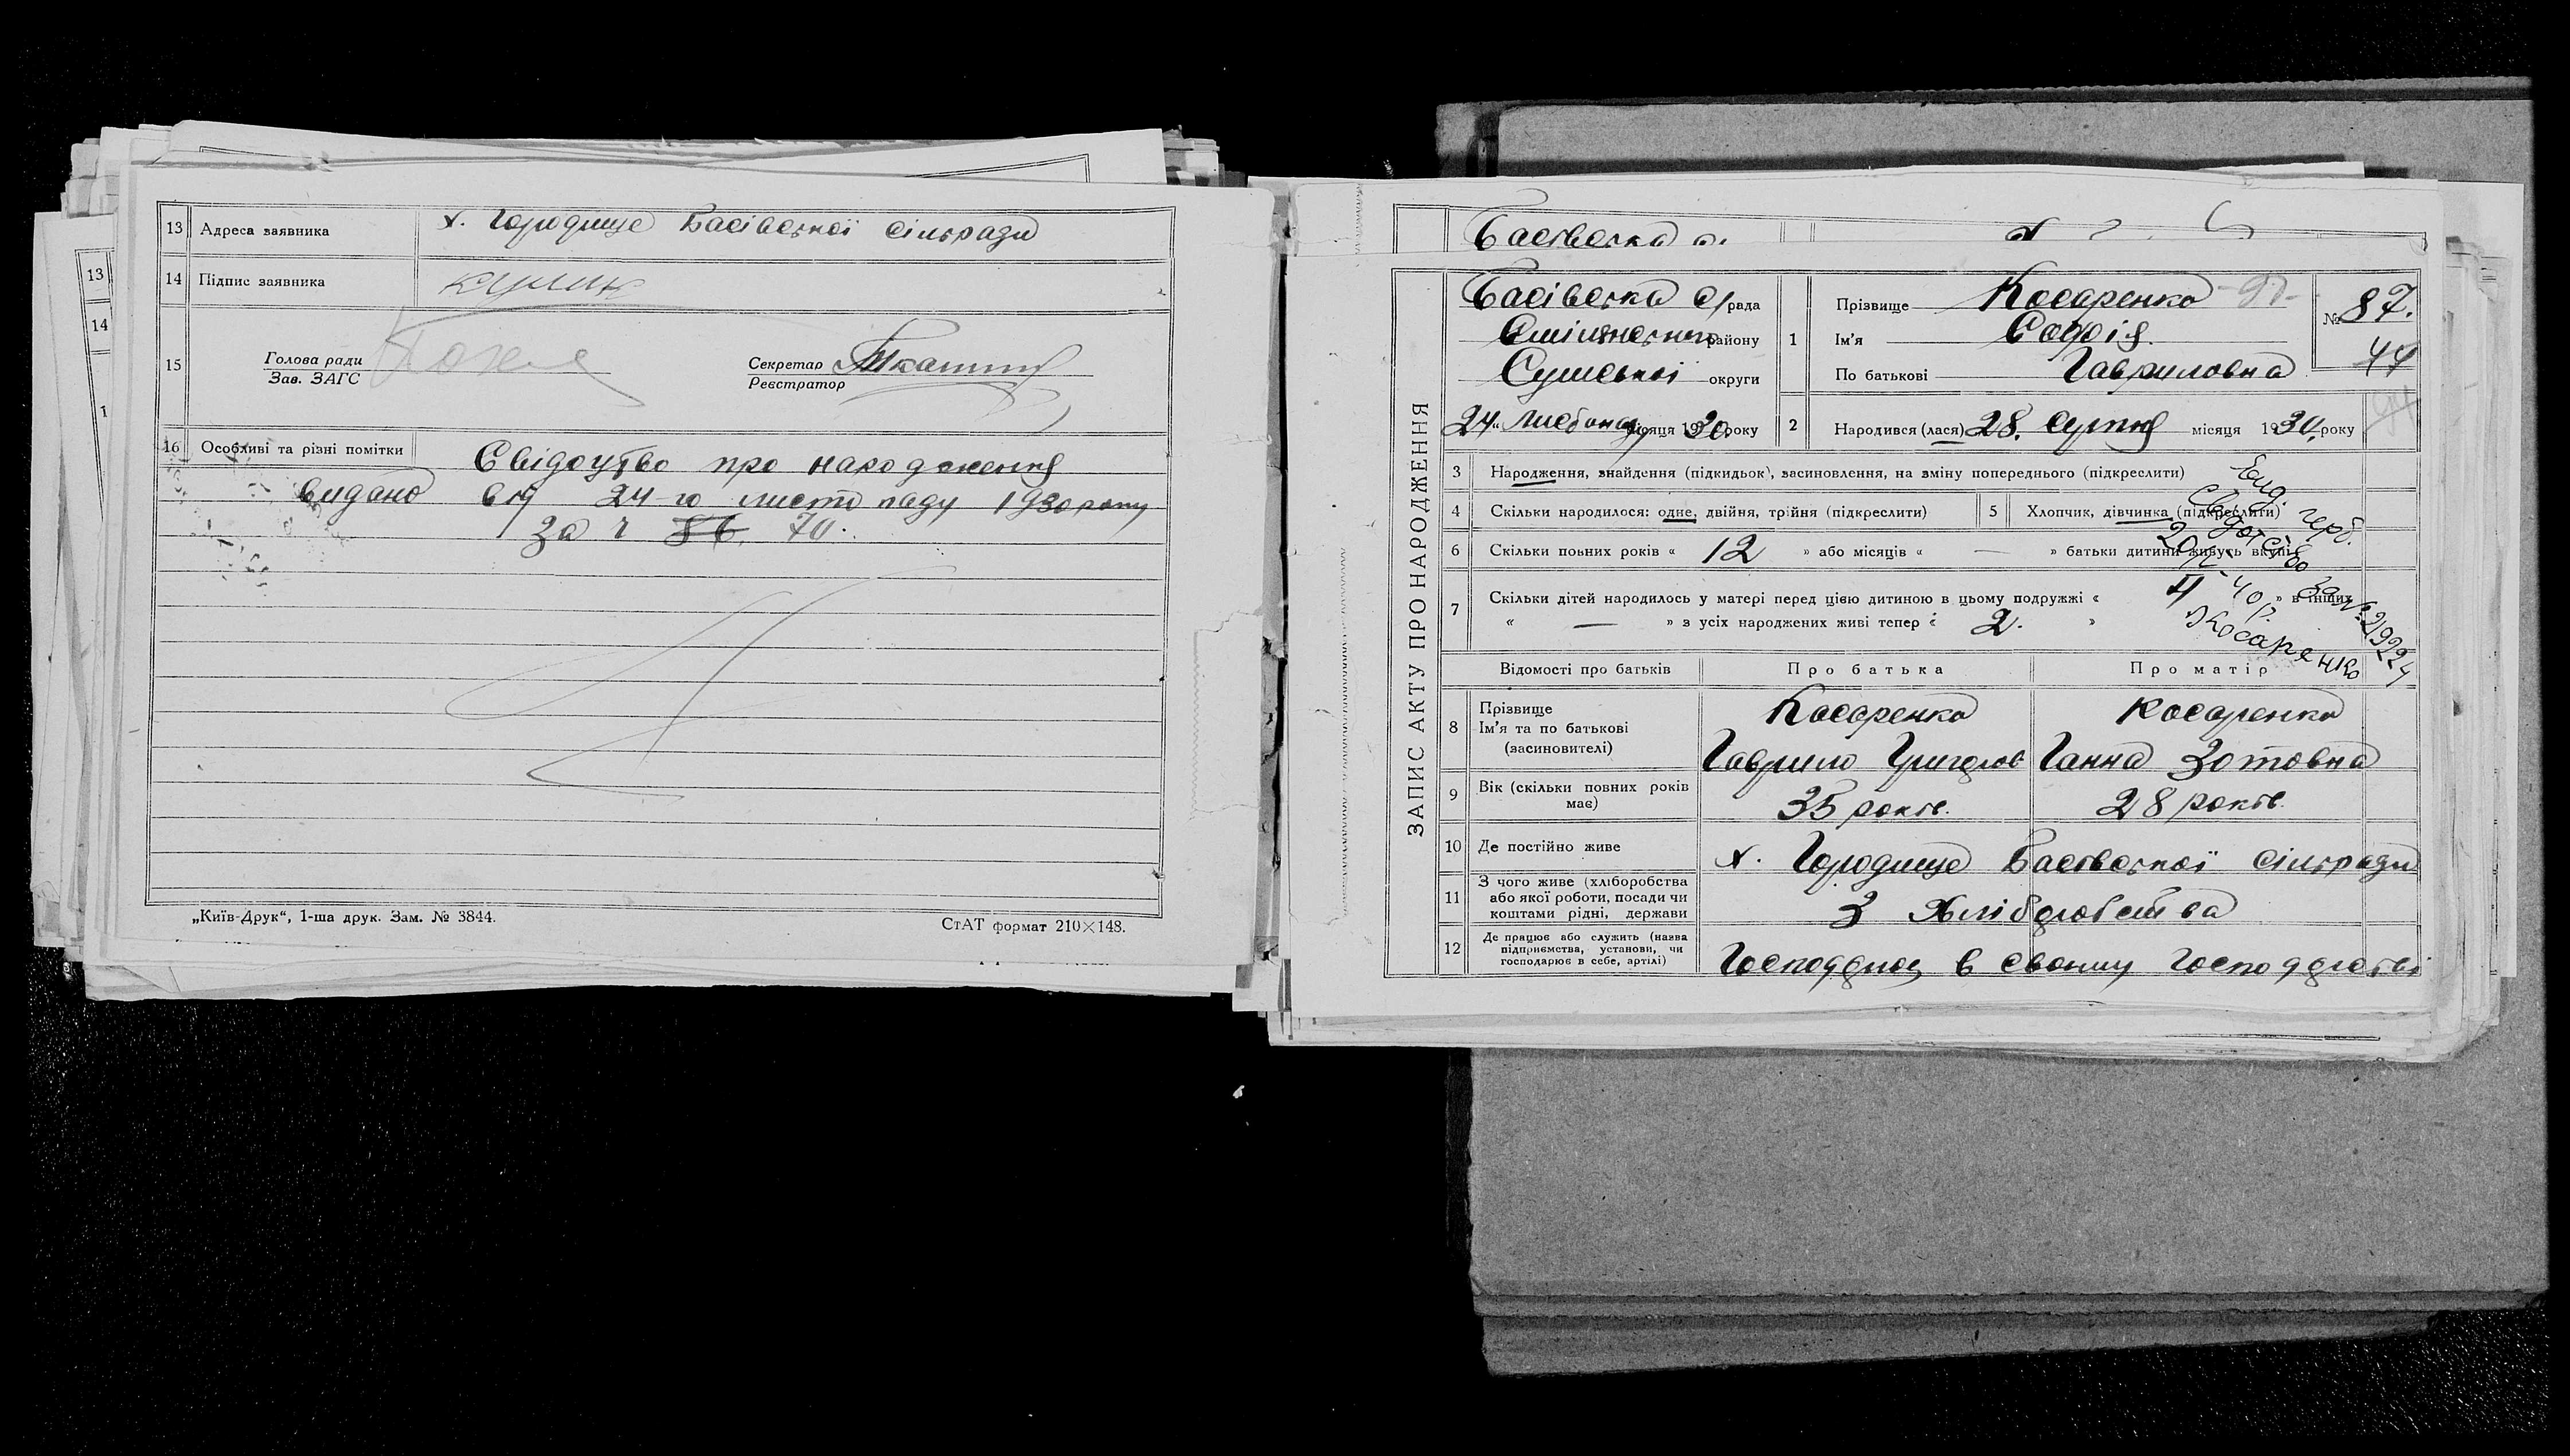 13 Адреса заявника х. Городище Басівської сільради
14 Підпис заявника Кулик
15 Голова ради
Зав. ЗАГС
Секретар
Реєстратор
16 Особливі та різні помітки Свідоцтво про народження
видано від 24-го листопаду 1930 року
за ч 86. 70.
„Київ-Друк“, 1-ша друк. Зам. № 3844.
СтАТ формат 210×148.
13
14
1
Басівська с.
ЗАПИС АКТУ ПРО НАРОДЖЕННЯ
Басівська с/рада
району
Сумської округи
24 місяця 1930 року
1 Прізвище Косаренко
Ім'я Софія
По батькові Гавриловна
№ 87.
44
2 Народився (лася) 28. Серпня місяця 1930 року
3 Народження, знайдення (підкидьок), засиновлення, на зміну попереднього (підкреслити)
4 Скільки народилося: одне, двійня, трійня (підкреслити)
5 Хлопчик, дівчинка (підкреслити)
6 Скільки повних років « 12 » або місяців « — » батьки дитини живуть вкупі
7 Скільки дітей народилось у матері перед цією дитиною в цьому подружжі « 4 » в інших
« — » з усіх народжених живі тепер « 2. »
Вид. герб.
Свідотство за № 219224
Косаренко
Відомості про батьків Про батька Про матір
8 Прізвище
Ім'я та по батькові
(засиновителі)
Косаренко
Гаврило Григоров
Косаренко
Ганна Зотовна
9 Вік (скільки повних років має) 35 років. 28 років.
10 Де постійно живе х. Городище Басівської сільради
11 З чого живе (хліборобства
або якої роботи, посади чи
коштами рідні, держави
З Хліборобства
12 Де працює або служить (назва
підприємства, установи, чи
господарює в себе, артілі)
Господарює в своему господарстві